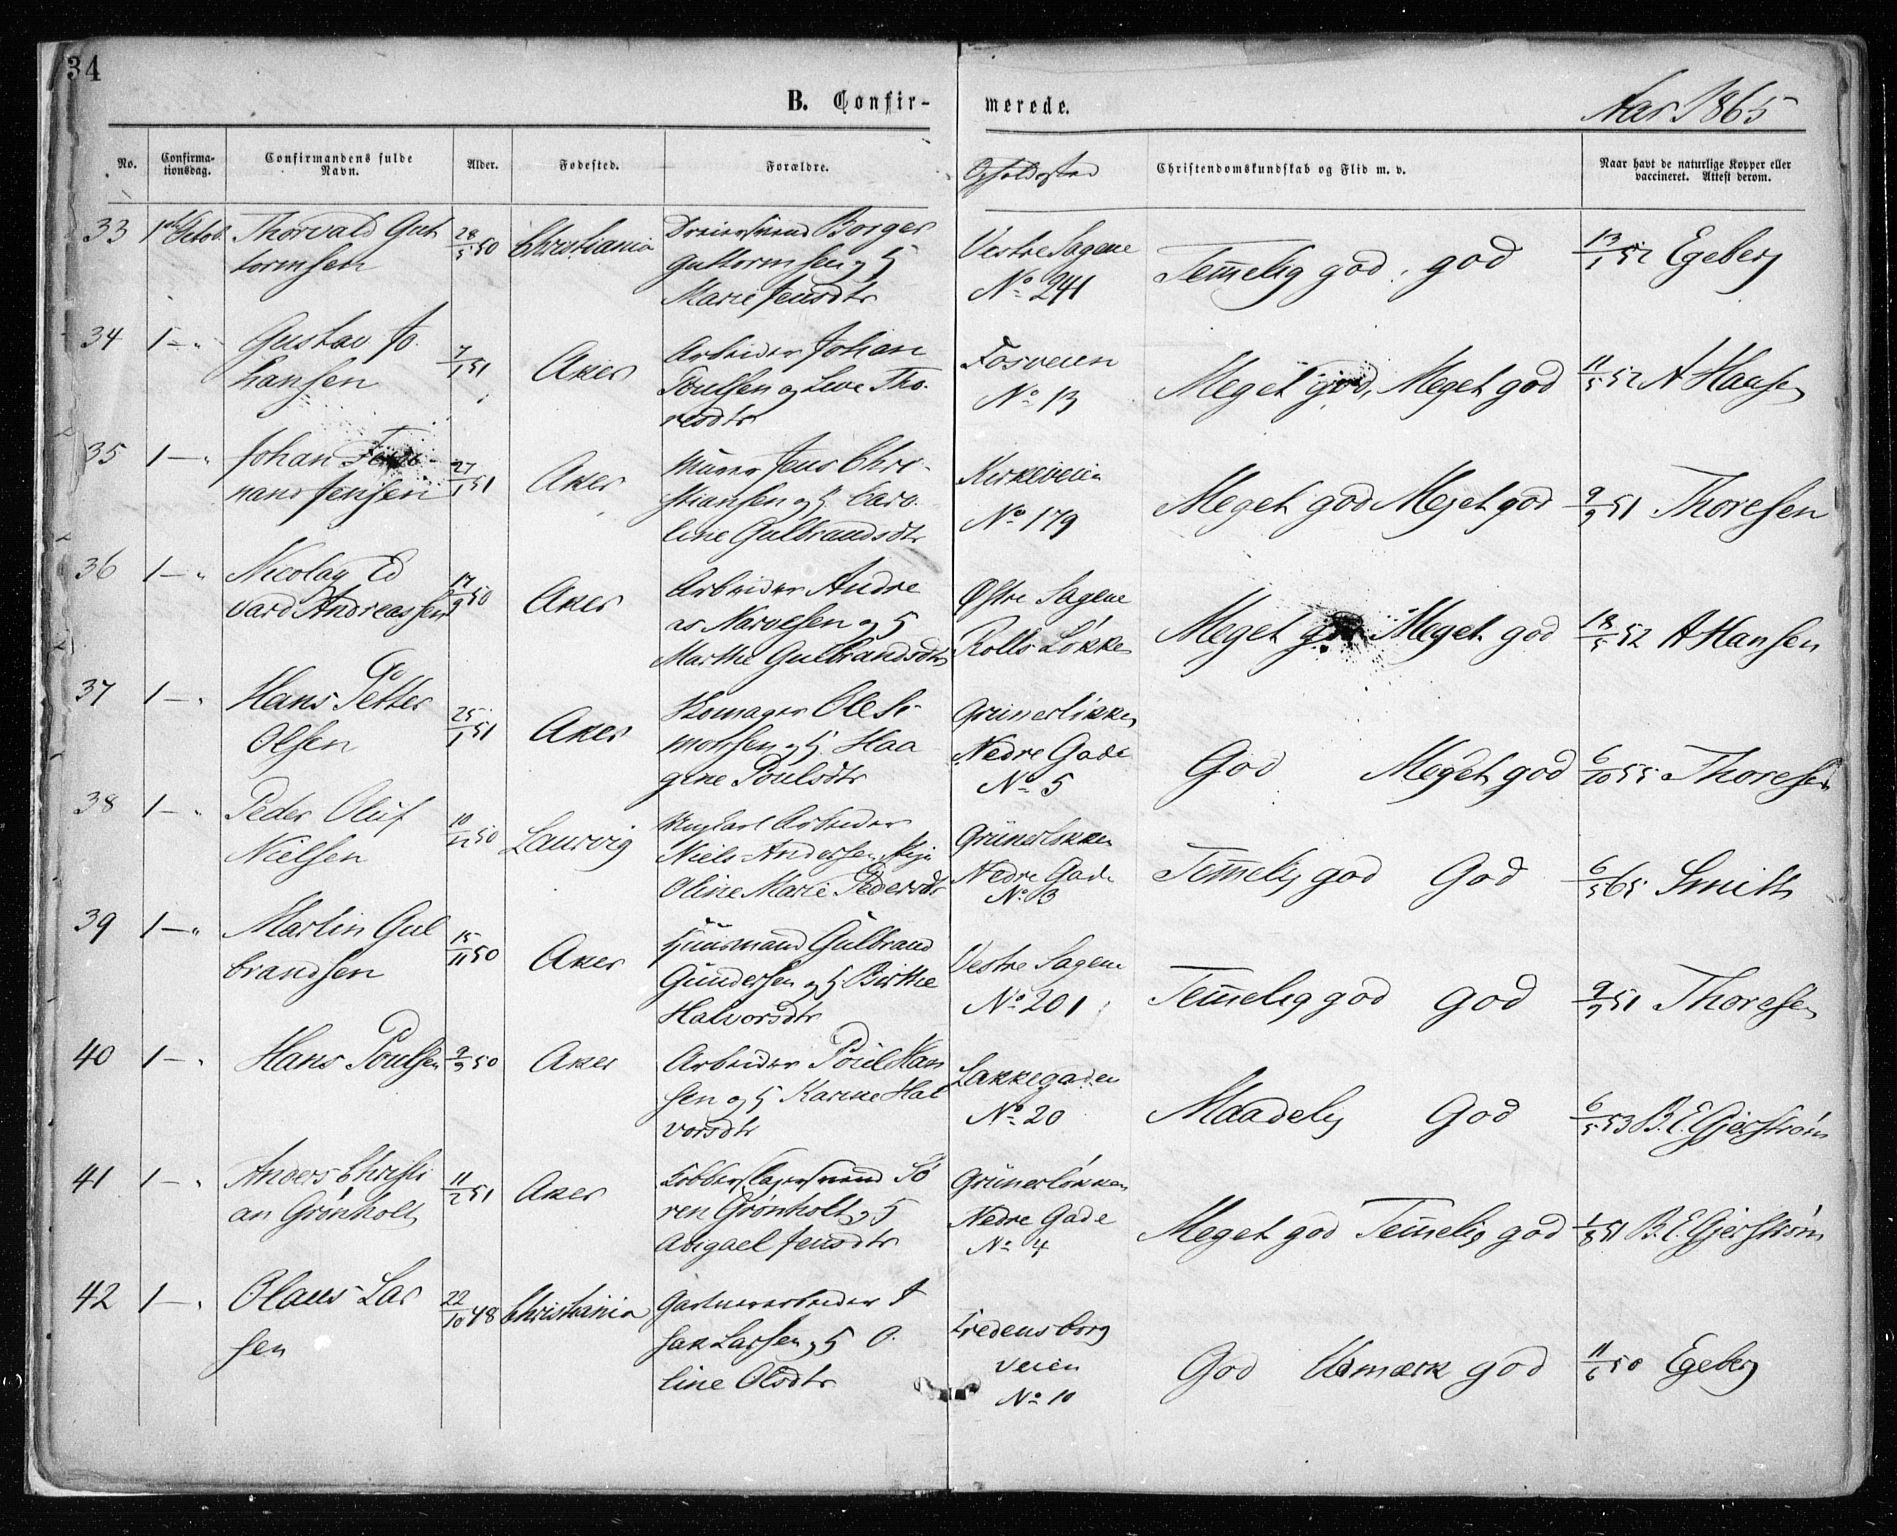 34
B. Confir-
merede.
Aar 1865
No.
Confirma-
tionsdag.
Confirmandens fulde
Navn.
Alder.
Fødested.
Forældre.
Opholdssted
Christendomskundskab og Flid m. v.
Naar havt de naturlige Kopper eller
vaccineret. Attest derom.
33 1ste Octob. Thorvald Gut 28/5 50 Christiania Dreiersvend Borger Vestre Sagene Temmelig god. god 13/1 52 Egeberg
tormsen Guttormsen og H
Marie Jensdtr No 241
34 1 — " Gustav Jo 7/1 51 Aker Arbeider Johan Fosveien Meget god, Meget god 11/5 52 A Hansen
hansen Poulsen og Tho-
redtr No 13
35 1 — " Johan 27/1 51 Aker Jens Chri- Kirkeveien Meget god Meget god 9/9 51 Thoresen
nand Jensen stiansen og H. Caro-
line Gulbrandsdtr No 179
36 1 — " Nicolay Ed 17/9 50 Aker Arbeider Andre Østre Sagene Meget god Meget god 18/5 52 A Hansen
vard Andreassen as Narvesen og H
Marthe Gulbrandsdtr Rolls Løkke
37 1 — " Hans Petter 25/1 51 Aker Skomager Ole Si- Grünerløkken God Meget god 6/10 55 Thoresen
Olsen monsen og H. Haa Nedre Gade
gine Poulsdtr No 5
38 1 — " Peder Oluf 10/12 50 Laurvig Ungkarl Arbeider Grünerløkken Temmelig god God 6/5 65 Smith
Nielsen Niels Andersen, Pige Nedre Gade
Oline Marie Pedersdtr No 3
39 1 — " Martin Gul 15/11 50 Aker Huusmand Gulbrand Vestre Sagene Temmelig god God 9/9 51 Thoresen
brandsen Gundersen og H Birthe No 201
Halvorsdtr
40 1 — " Hans Poulsen 9/9 50 Aker Arbeider Poul Han Lakkegaden Maadelig God 6/5 53 B. E. Gjerstrøm
sen og H Karine Hal No 20
vorsdtr
41 1 — " Anders Christi 11/2 51 Aker Kobberslagersvend Sø Grünerløkken Meget god Temmelig god 1/8 51 B. E. Gjerstrøm
an Grønholt ren Grønholt og H Nedre Gade
Abigael Jensdtr No 4
42 1 — " Olaus Lar 22/10 48 Christiania Gartnerarbeider I Fredensborg God Udmærk god 11/6 50 Egeberg
sen sak Larsen og H O- veien
line Olsdtr No 10